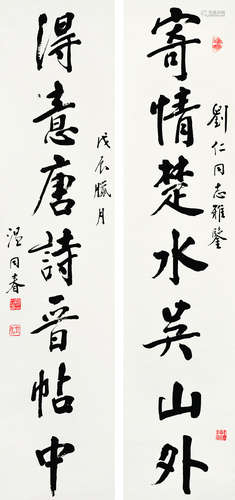 劉仁同志雅鑒
寄情楚水吳山外
得意唐詩晉帖中
戊辰臘月
温同春